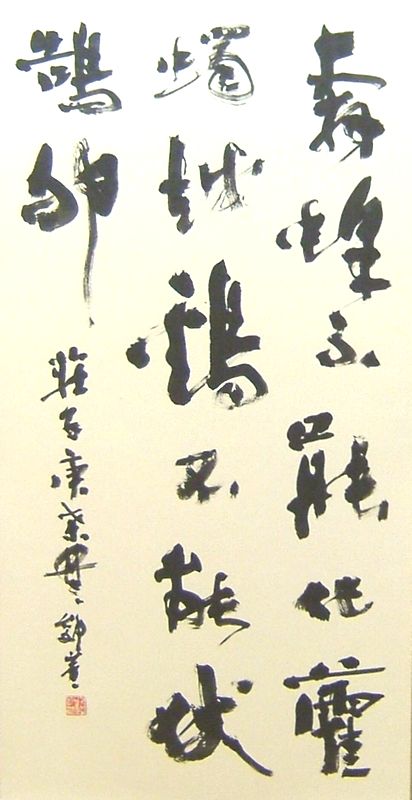 奔蜂不能化藿
蠋越鷄不能伏
鵠卵
莊子庚桑楚